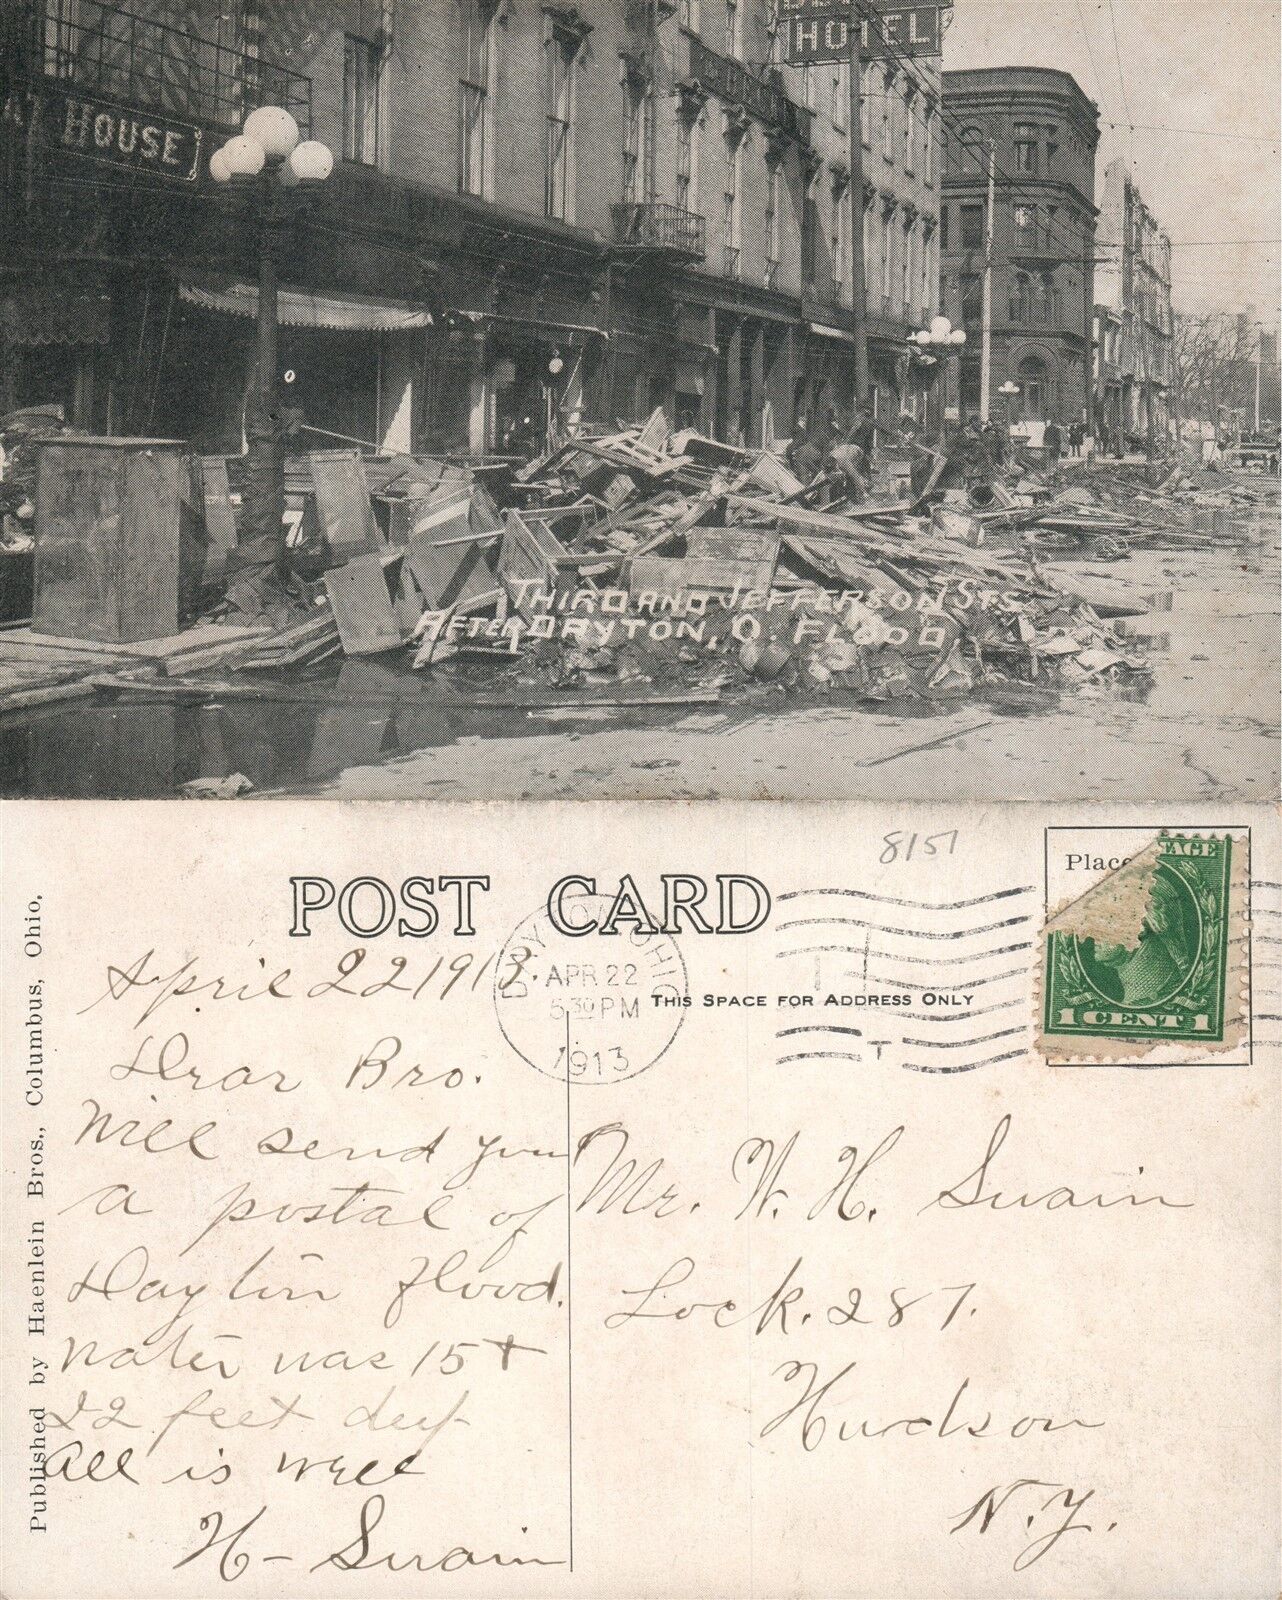 HOUSE
HOTEL
THIRD AND JEFFERSON STS
AFTER DAYTON, O. FLOOD.
8151
POST CARD
Place
TAGE
1 CENT 1
DAYTON, OHIO
APR 22
5 30 PM
1913
T
THIS SPACE FOR ADDRESS ONLY
Published by Haenlein Bros., Columbus, Ohio.
April 22 1913.
Dear Bro.
Will send you
a postal of
Dayton flood.
Water was 15 +
22 feet deep
All is well
H- Swain
Mr. W. H. Swain
Lock. 287.
Hudson
N.Y.